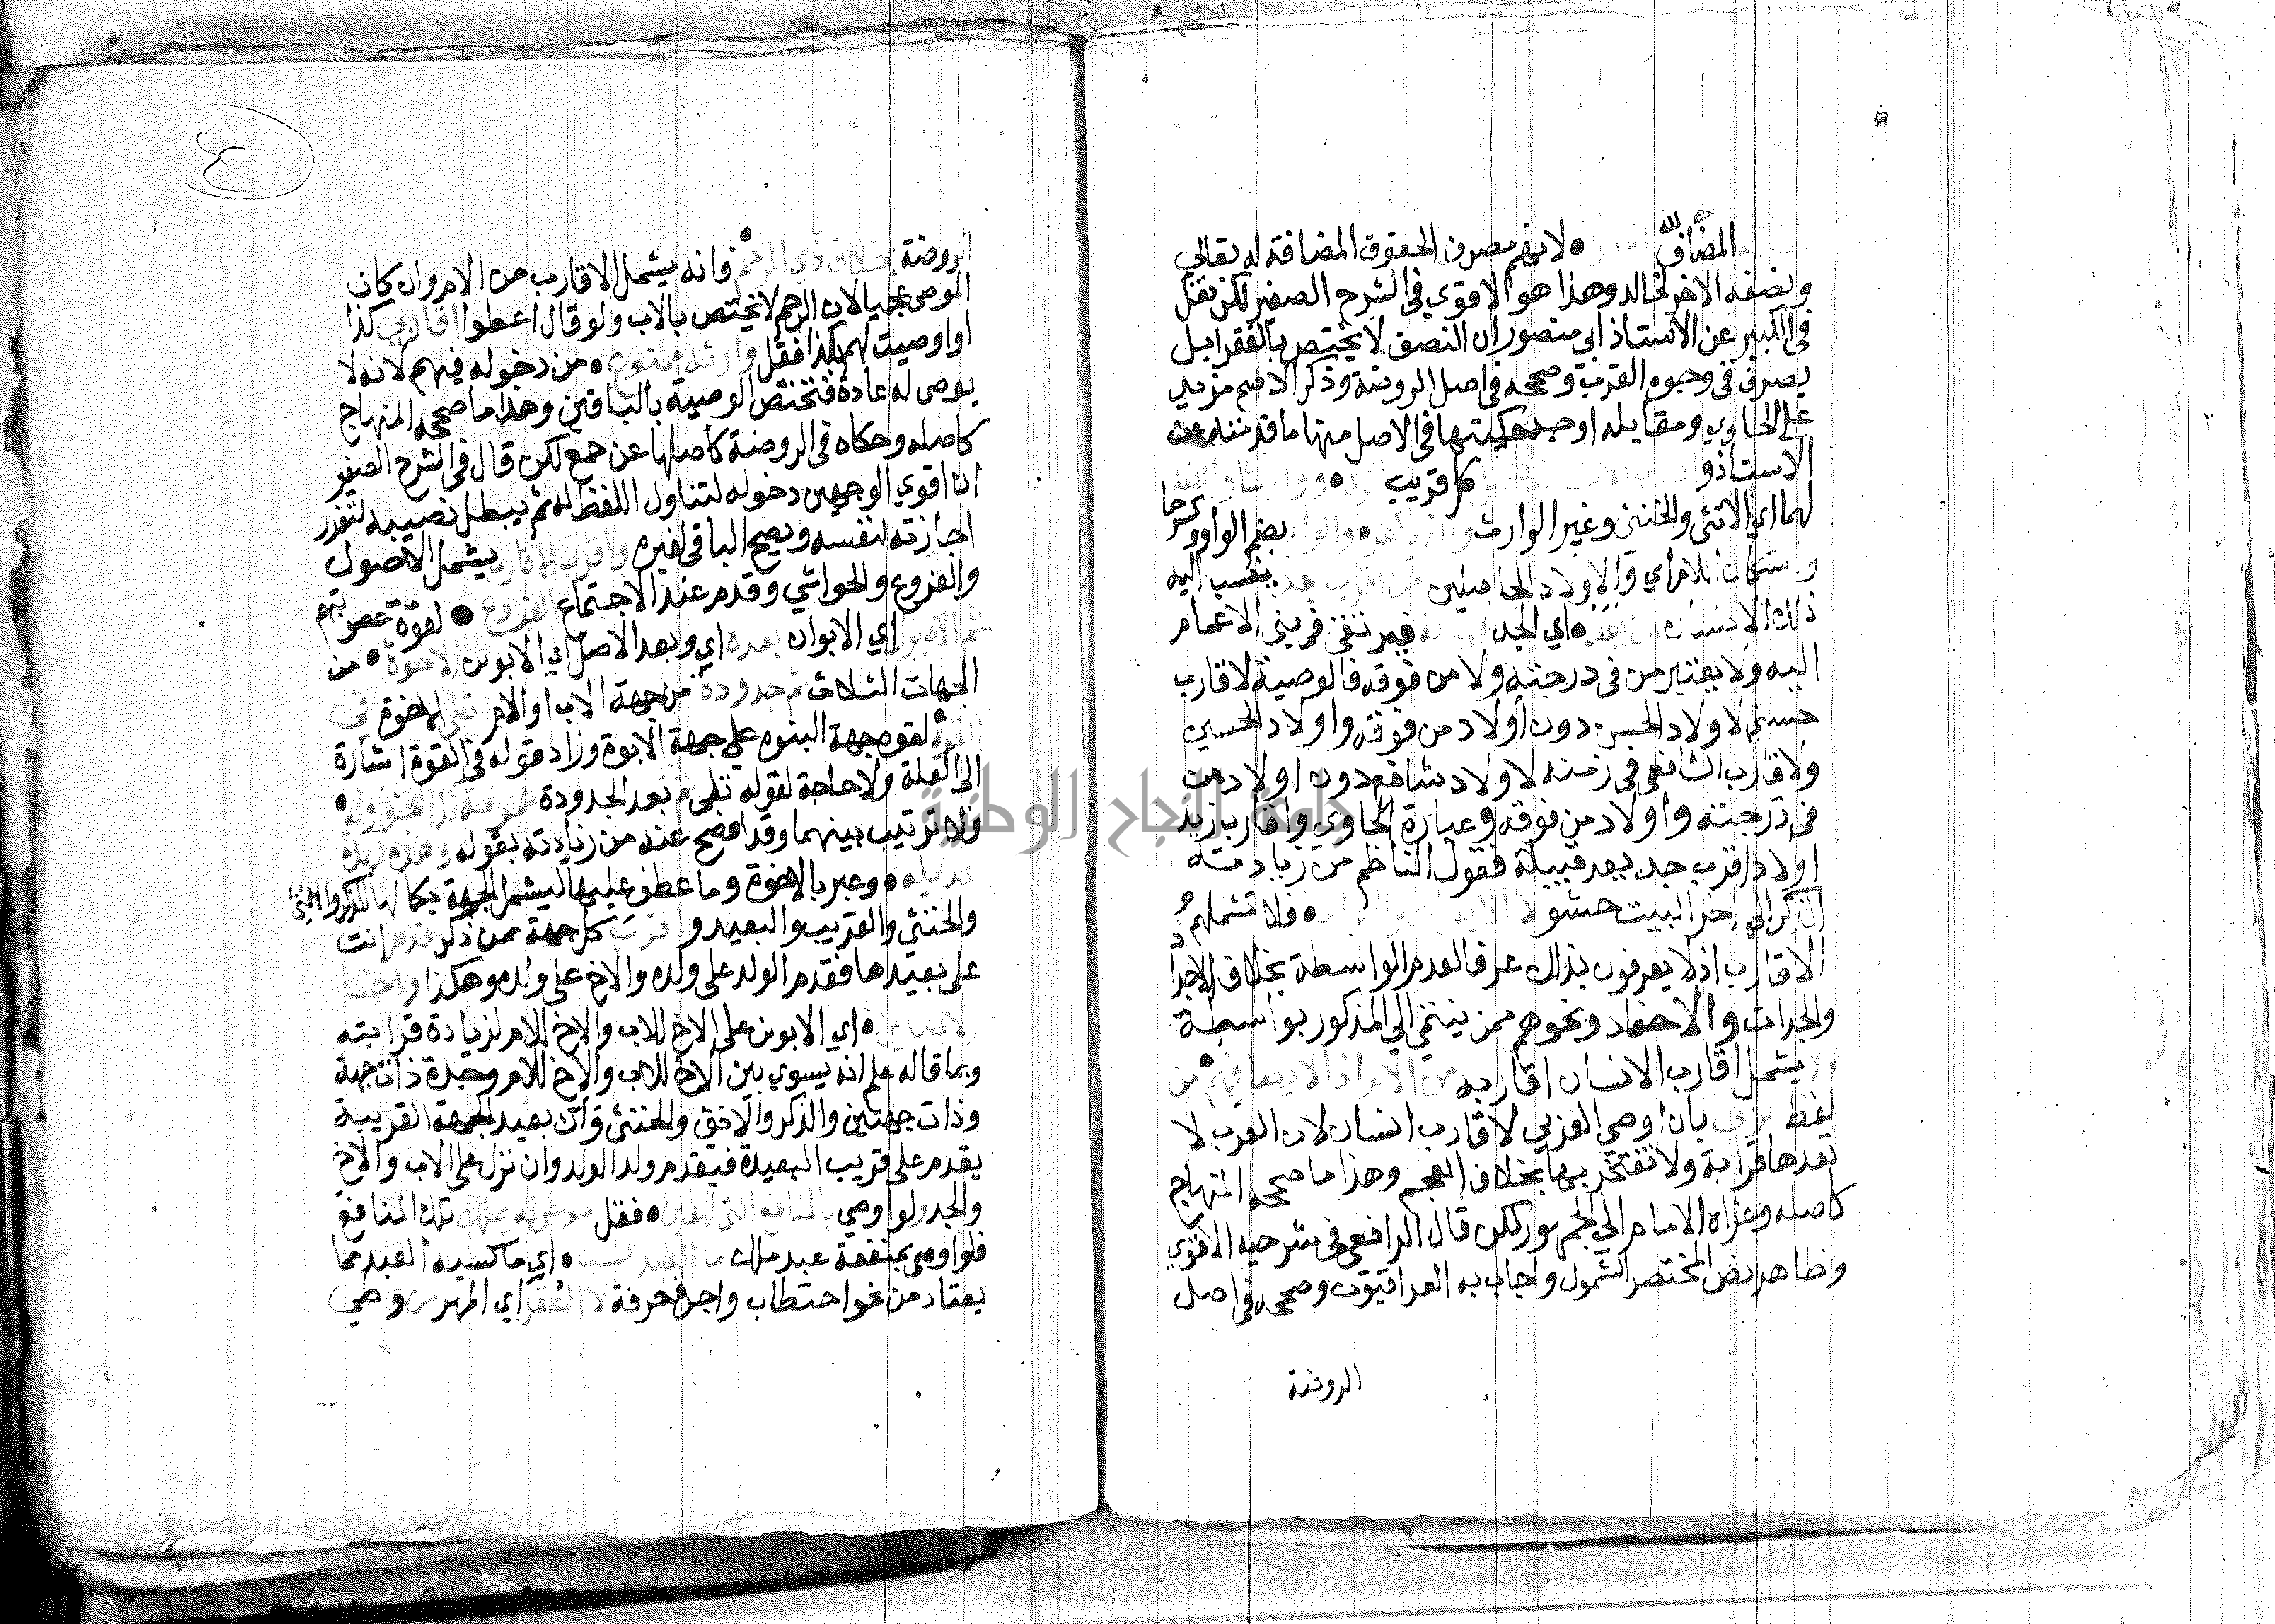 المضاف لله لانهم مصرف الحقوق المضافة له تعالى
ونصفه الاخر لخالد وهذا هو الاقوي في الشرح الصغير لكن نقل
في الكبير عن الاستاذ ابي منصور ان النصف لا يختص بالفقرا بل
يصرف في وجوه القرب وصححه في اصل الروضة وذكر الاصح مزيد
على الحاوي ومقابله اوجه حكيتها في الاصل منها ما قدمته عن
الاستاذ و كل قريب
لهما اي الانثى والخنثى وغير الوارث بضم الواو وكسرها
واسكان اللام اي والاولاد الحاصلين من اقرب جد ينسب اليه
ذلك الانسان اي الجد فيرتقى في بني الاعمام
اليه ولا يعتبر من في درجته ولا من فوقه فالوصية لاقارب
حسني لاولاد الحسن دون اولاد من فوقه واولاد الحسين
ولاقارب الشافعي في زمنه لاولاد شافع دون اولاد من
في درجته واولاد من فوقه وعبارة الحاوي واقارب زيد
اولاد اقرب جد يعد قبيلة فقول الناظم من زيادته
ان ذكر الي اخر البيت حشو لا فلا تشملهم
الاقارب اذ لا يعرفون بذلك عرفا لعدم الواسطة بخلاف الاجداد
والجدات والاحفاد ونحوهم ممن ينتمي الي المذكور بواسطة
ولا يشمل اقارب الانسان اقاربه من الام اذ لا يعد فهم من
لفظ بان اوصي العربي لاقارب انسان لان العرب لا
تعدها قرابة ولا تفتخر بها بخلاف العجم وهذا ما صححه المنهاج
كاصله وعزاه الامام الي الجمهور لكن قال الرافعي في شرحيه الاقوي
وظاهر نص المختصر الشمول واجاب به العراقيون وصححه في اصل
الروضة
الروضة بخلاف ذي الرحم فانه يشمل الاقارب من الام وان كان
الموصي عجميا لان الرحم لا يختص بالاب ولو قال اعطوا اقاربي كذا
او اوصيت لهم بكذا فقل وارثه ممنوع من دخوله فيهم لانه لا
يوصى له عادة فتختص الوصية بالباقين وهذا ما صححه المنهاج
كاصله وحكاه في الروضة كاصلها عن جمع لكن قال في الشرح الصغير
ان اقوي الوجهين دخوله لتناول اللفظ له ثم يبطل نصيبه لتعذر
اجازته لنفسه ويصح الباقي لغيره واقرب الاقارب يشمل الاصول
والفروع والحواشي وقدم عند الاجتماع الفروع لقوة عصوبتهم
اي الابوان بعده اي وبعد الاصل اي الابوين الاخوة من
الجهات الثلاث ثم جدودة من جهة الاب او الام تلي الاخوة في
القوة لقوة جهة البنوة علي جهة الابوة وزاد قوله في القوة اشارة
الي العلة ولا حاجة لقوله تلي بعد الجدودة
ولا ترتيب بينهما وقد افصح عنه من زيادته بقوله
وعبر بالاخوة وما عطف عليها ليشمل الجهة بكمالها الذكر والانثى
والخنثى والقريب والبعيد و اقرب كل جهة ممن ذكر قدم انت
على بعيدها فقدم الولد على ولده والاخ على ولده وهكذا واخا
اي الابوين على الاخ للاب والاخ للام لزيادة قرابته
وبما قاله علم انه يسوي بين الاخ للاب والاخ للام وجدة ذات جهة
وذات جهتين والذكر والاخت والخنثى وان بعيد الجهة القريبة
يقدم على قريب البعيدة فيقدم ولد الولد وان نزل على الاب والاخ
والجد ولو اوصي بالمنافع التي للعين فقل تلك المنافع
فلو اوصي بمنفعة عبد ملك اي ما كسبه العبد مما
يعتاد من نحو احتطاب واجرة حرفة لا العقر اي المهر من وطي